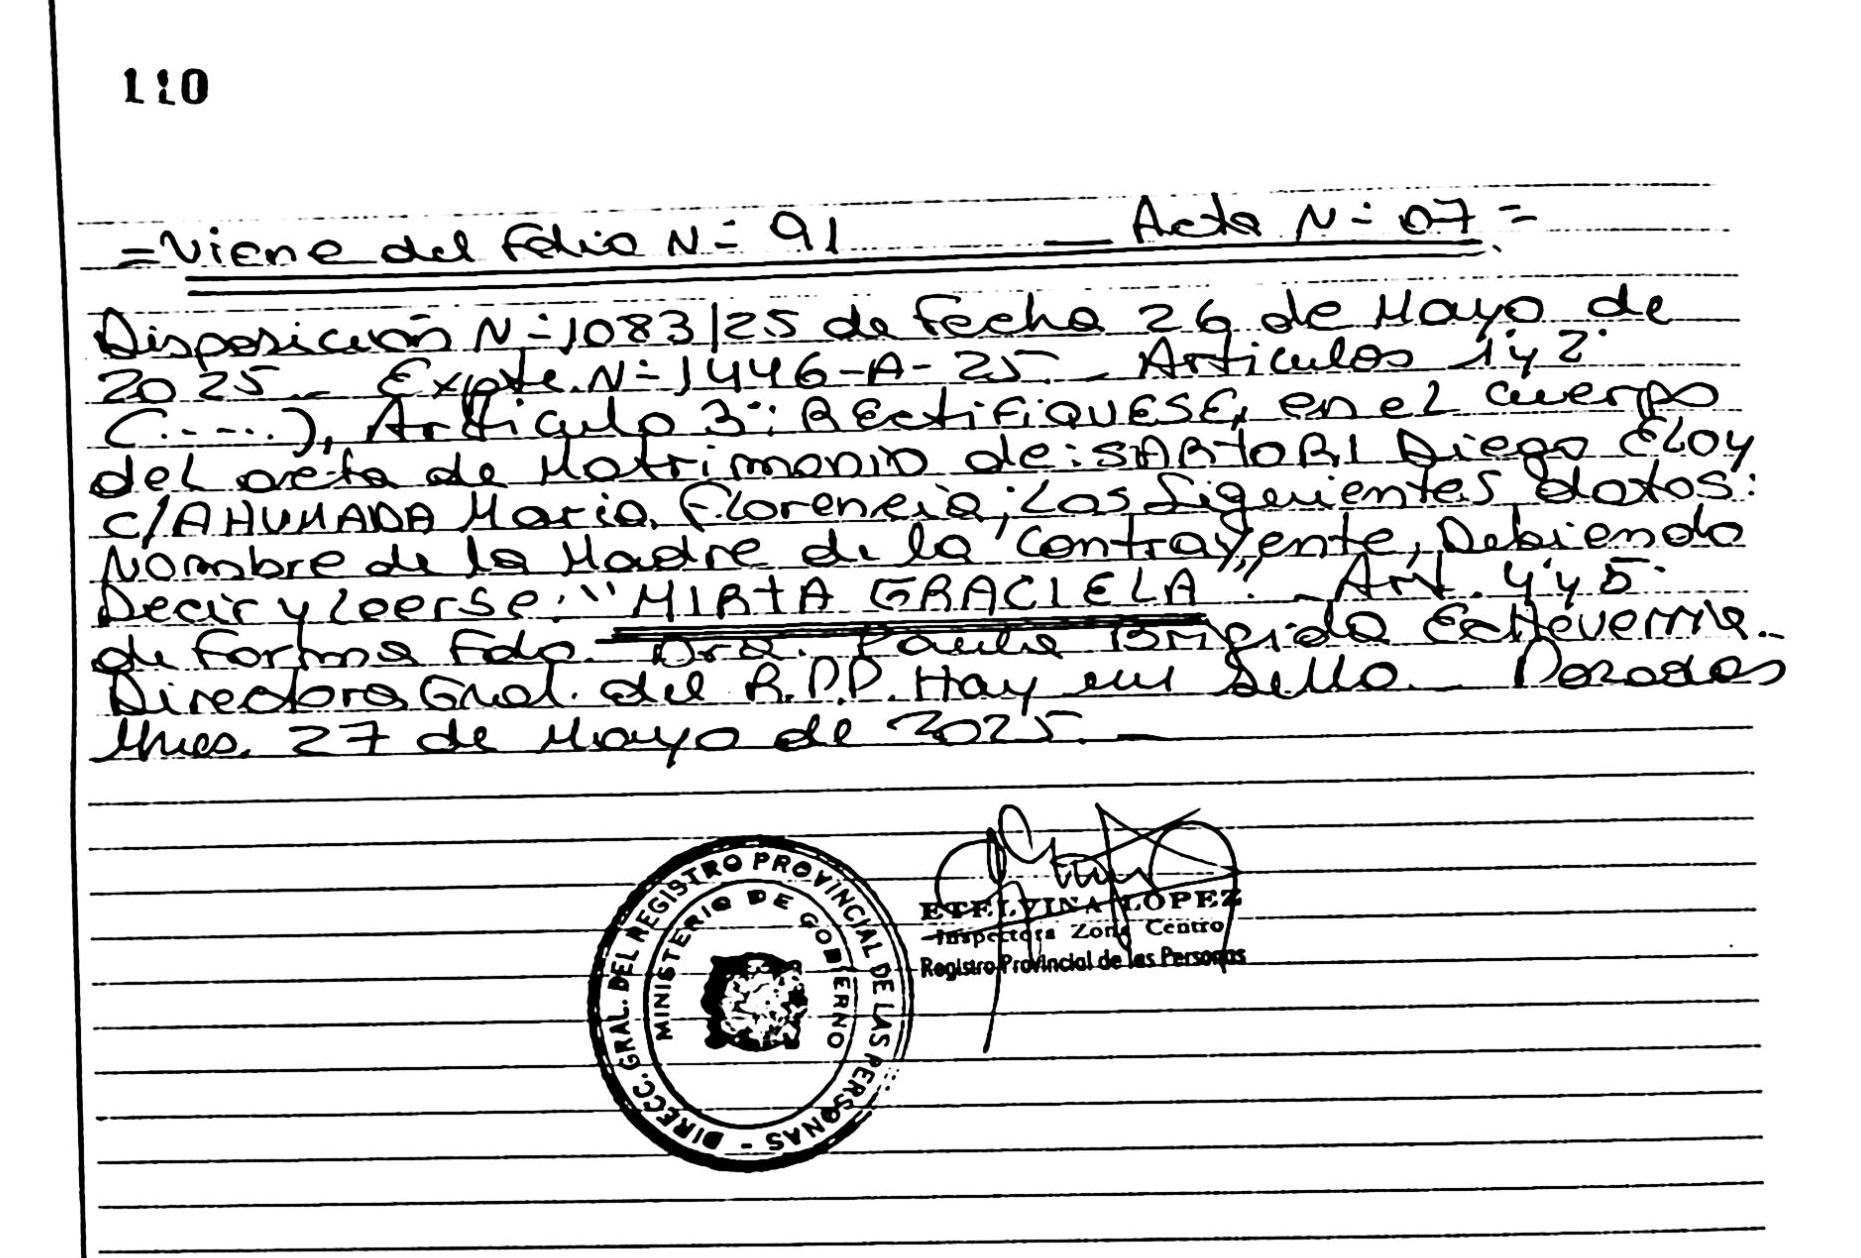 110
=Viene del Folio N= 91 — Acta N= 07=
Disposición N=1083/25 de Fecha 26 de Mayo de
2025_ Expte. N=1446-A-25._ Articulos 1°y 2°
(.....), Articulo 3°: RECtiFiQUESE, en el cuerpo
del acta de Matrimonio de: SARtORI Diego Eloy
c/AHUMADA Maria Florencia; Los Siguientes datos:
Nombre de la Madre de la Contrayente, Debiendo
Decir y Leerse: "MIRtA GRACIELA". _ Art. 4°y 5°
de forma Fdo. Dra. Paula Brigida Echeverria._
Directora Gral. del R.P.P. Hay un Sello_ Posadas
Mnes. 27 de Mayo de 2025._
DIRECC. GRAL. DEL REGISTRO PROVINCIAL DE LAS PERSONAS -
MINISTERIO DE GOBIERNO
ETELVINA LOPEZ
Inspectora Zona Centro
Registro Provincial de las Personas